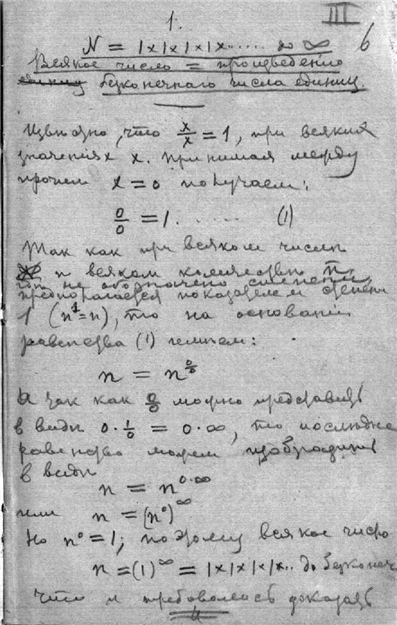 III
1.
6
N = 1×1×1×1×..... до ∞
Всякое число = произведению
безконечнаго числа единиц
Извѣстно, что x/x = 1, при всяких
значениях x. принимая между
прочем x = 0 получаем:
0/0 = 1. ..... (1)
Так как при всяком числе
n всяком количествѣ n,
где не обозначено степени,
предполагается показателем степени
1 (n¹=n), то на основании
равенства (1) пишем:
n = n^0/0
А так как 0/0 можно представить
в видѣ 0·1/0 = 0·∞, то последнее
равенство можем изобразить
в видѣ
n = n^0·∞
или n = (n⁰)^∞
Но n⁰ = 1; поэтому всякое число
n = (1)^∞ = 1×1×1×1×.. до безконеч
что и требовалось доказать